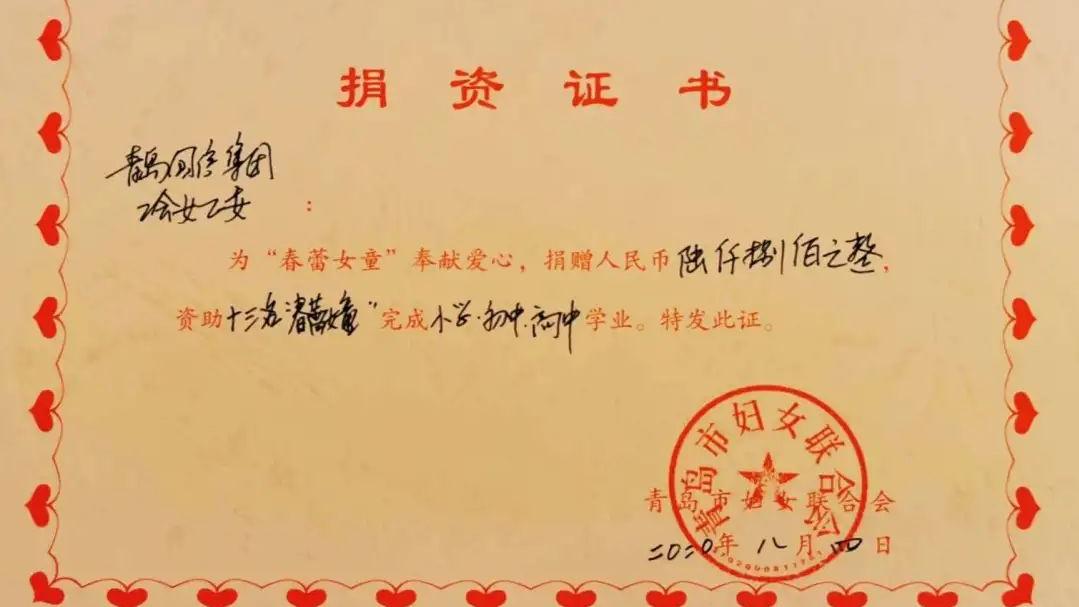 捐资证书
青岛国信集团
工会女工委:
为“春蕾女童”奉献爱心,捐赠人民币陆仟捌佰之整,
资助十三名“春蕾女童”完成小学·初中·高中学业。特发此证。
青岛市妇女联合会
青岛市妇女联合会
二0二0年八月四日